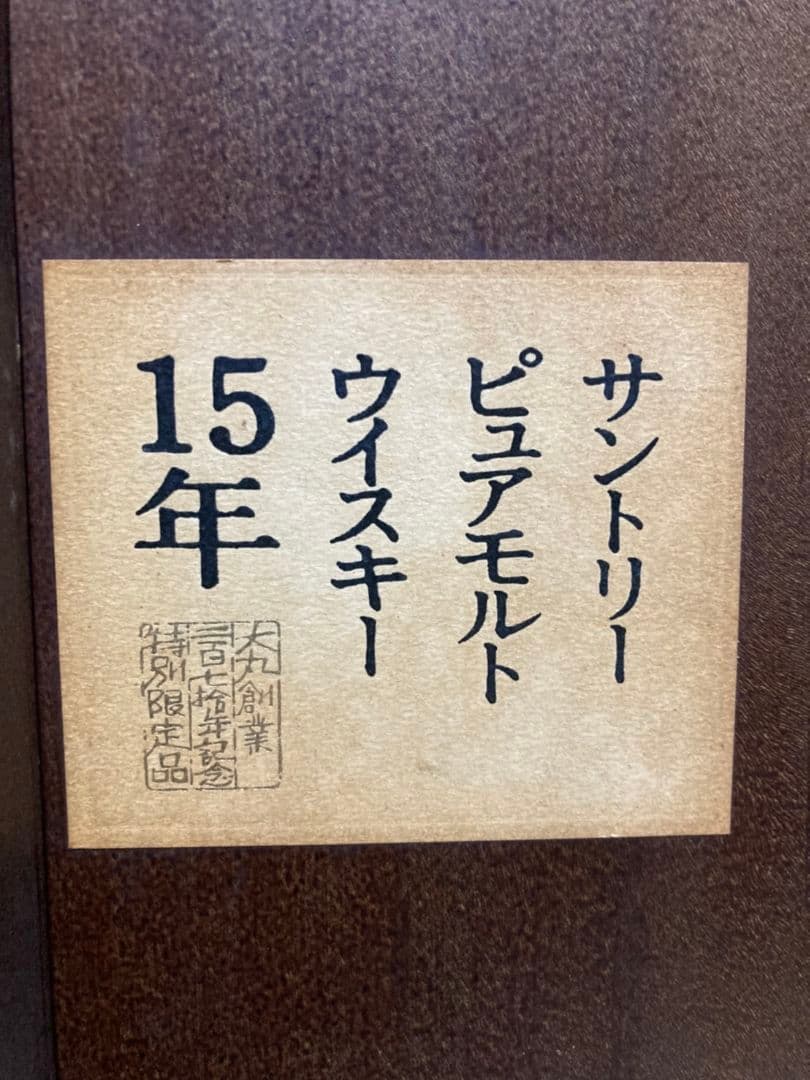 サントリー
ピュアモルト
ウイスキー
15年
大丸創業
二百七拾年記念
特別限定品